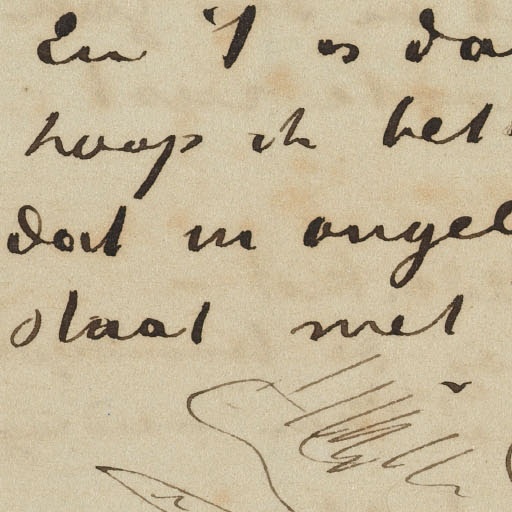 En 't is da
hoop ik het
dat in angel
staat met